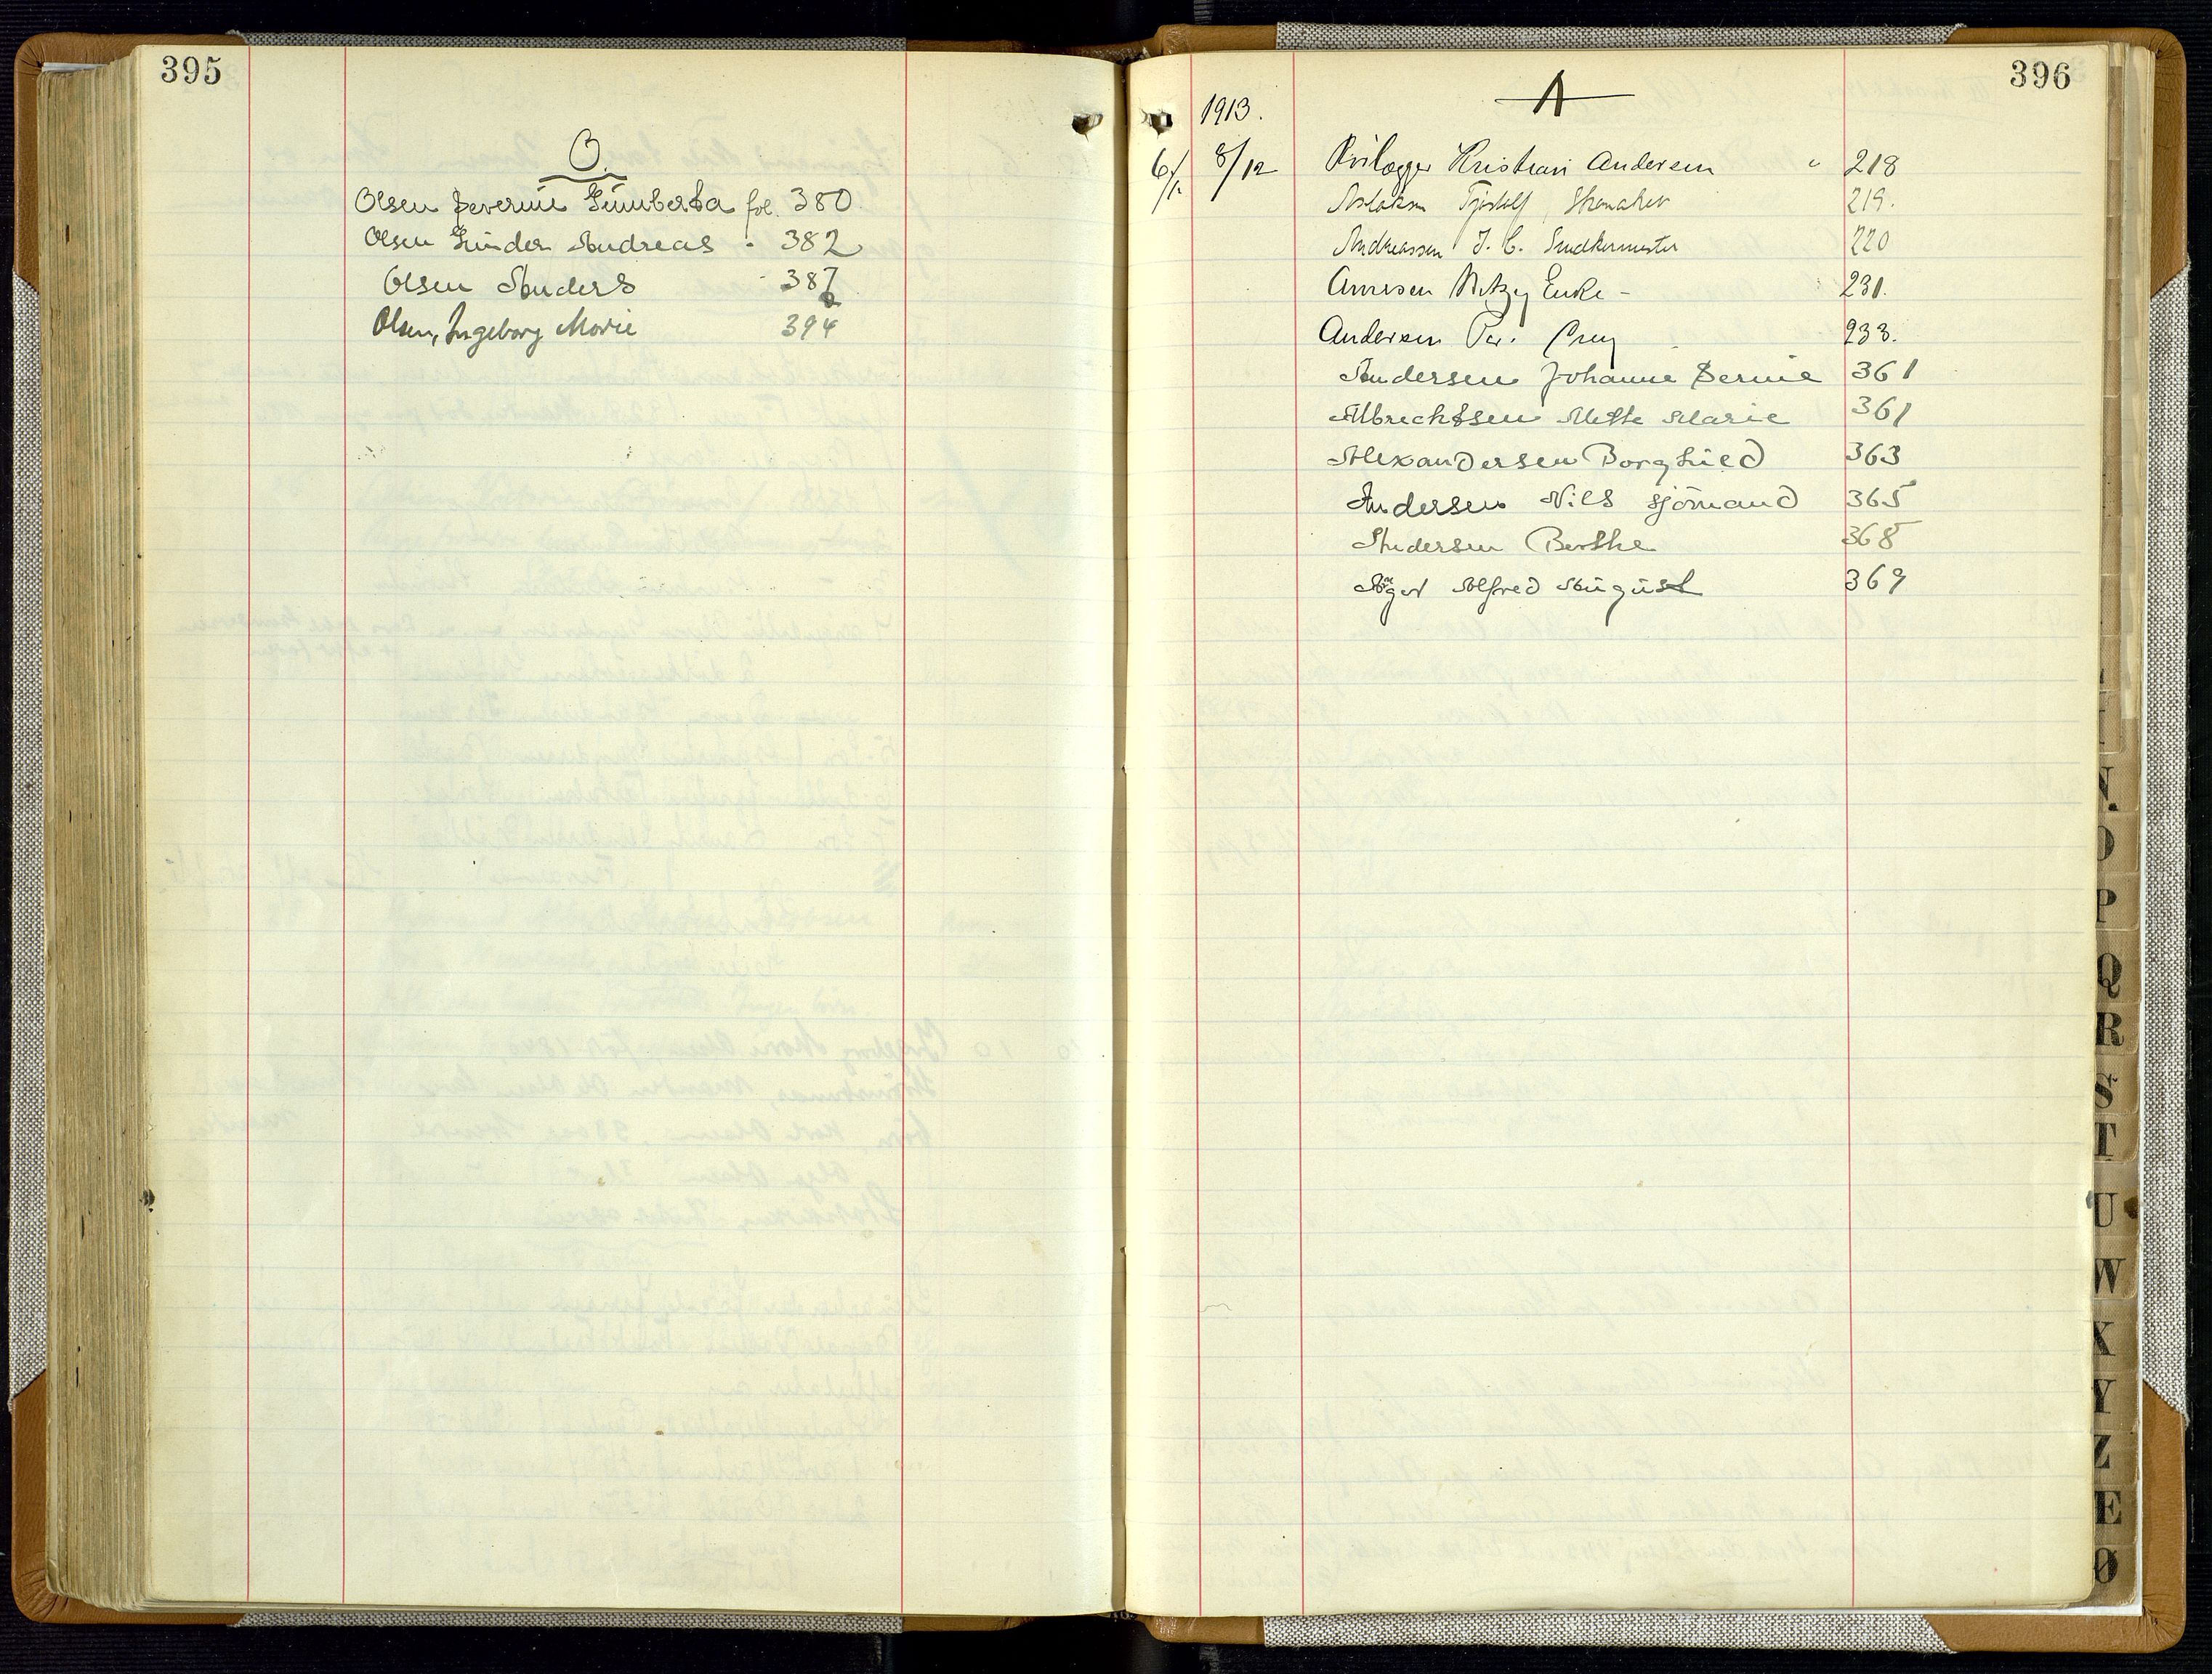 395
O.
Olsen Severine Gumberta fol. 380.
Olsen Gunder Andreas " 382
Olsen Anders " 387
Olsen, Ingeborg Marie 394
396
A
1913.
6/1 8/12 Kristian Andersen " 218
Aslaksen Tjostolf, Skomaker 219.
Andreassen J. C. 220
Enke - 231.
Andersen 233.
Andersen Johanne Bernie 361
Albrechtsen Mette Marie 361
Alexandersen Borghild 363
Andersen Nils sjömand 365
Andersen Berthe 368
Alfred August 369
N.
O
P
Q
R
S
T
U
W
X
Y
Z
Æ
Ø